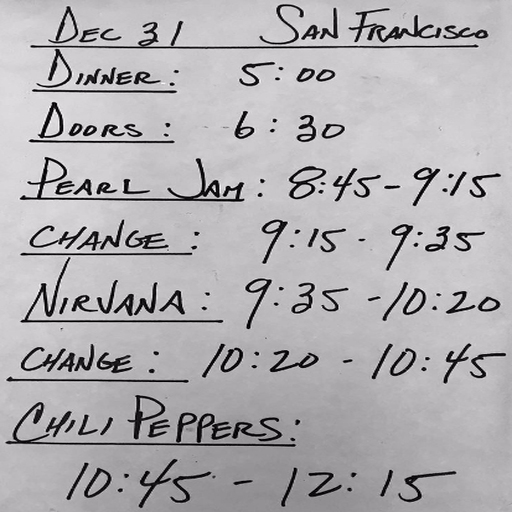 DEC 31 SAN FRANCISCO
DINNER: 5:00
DOORS: 6:30
PEARL JAM: 8:45-9:15
CHANGE: 9:15 - 9:35
NIRVANA: 9:35 -10:20
CHANGE: 10:20 - 10:45
CHILI PEPPERS:
10:45 - 12:15